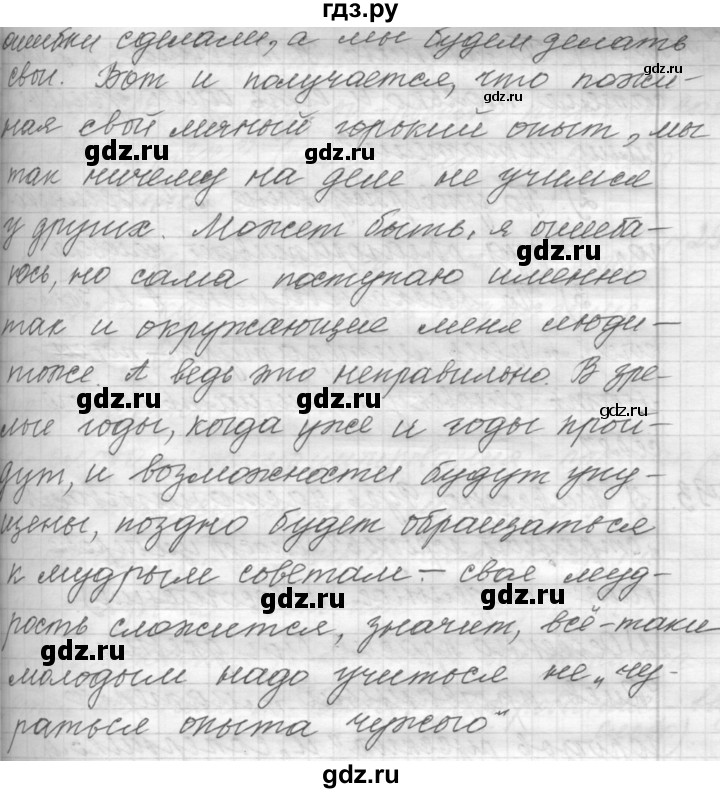 гдз.ру
ошибки сделали, а мы будем делать
свои. Вот и получается, что пожи-
gdz.ru
gdz.ru
ная свой личный горький опыт, мы
gdz.ru
gdz.ru
так ничему на деле не учимся
у других. Может быть, я ошиба-
gdz.ru
юсь, но сама поступаю именно
так и окружающие меня люди -
тоже. А ведь это неправильно. В зре-
gdz.ru
gdz.ru
gdz.ru
лые годы, когда уже и годы прой-
дут, и возможности будут упу-
щены, поздно будет обращаться
к мудрым советам - своя муд-
gdz.ru
gdz.ru
рость сложится, значит, всё-таки
gdz.ru
молодым надо учиться не „чу-
раться опыта чужого"
gdz.ru